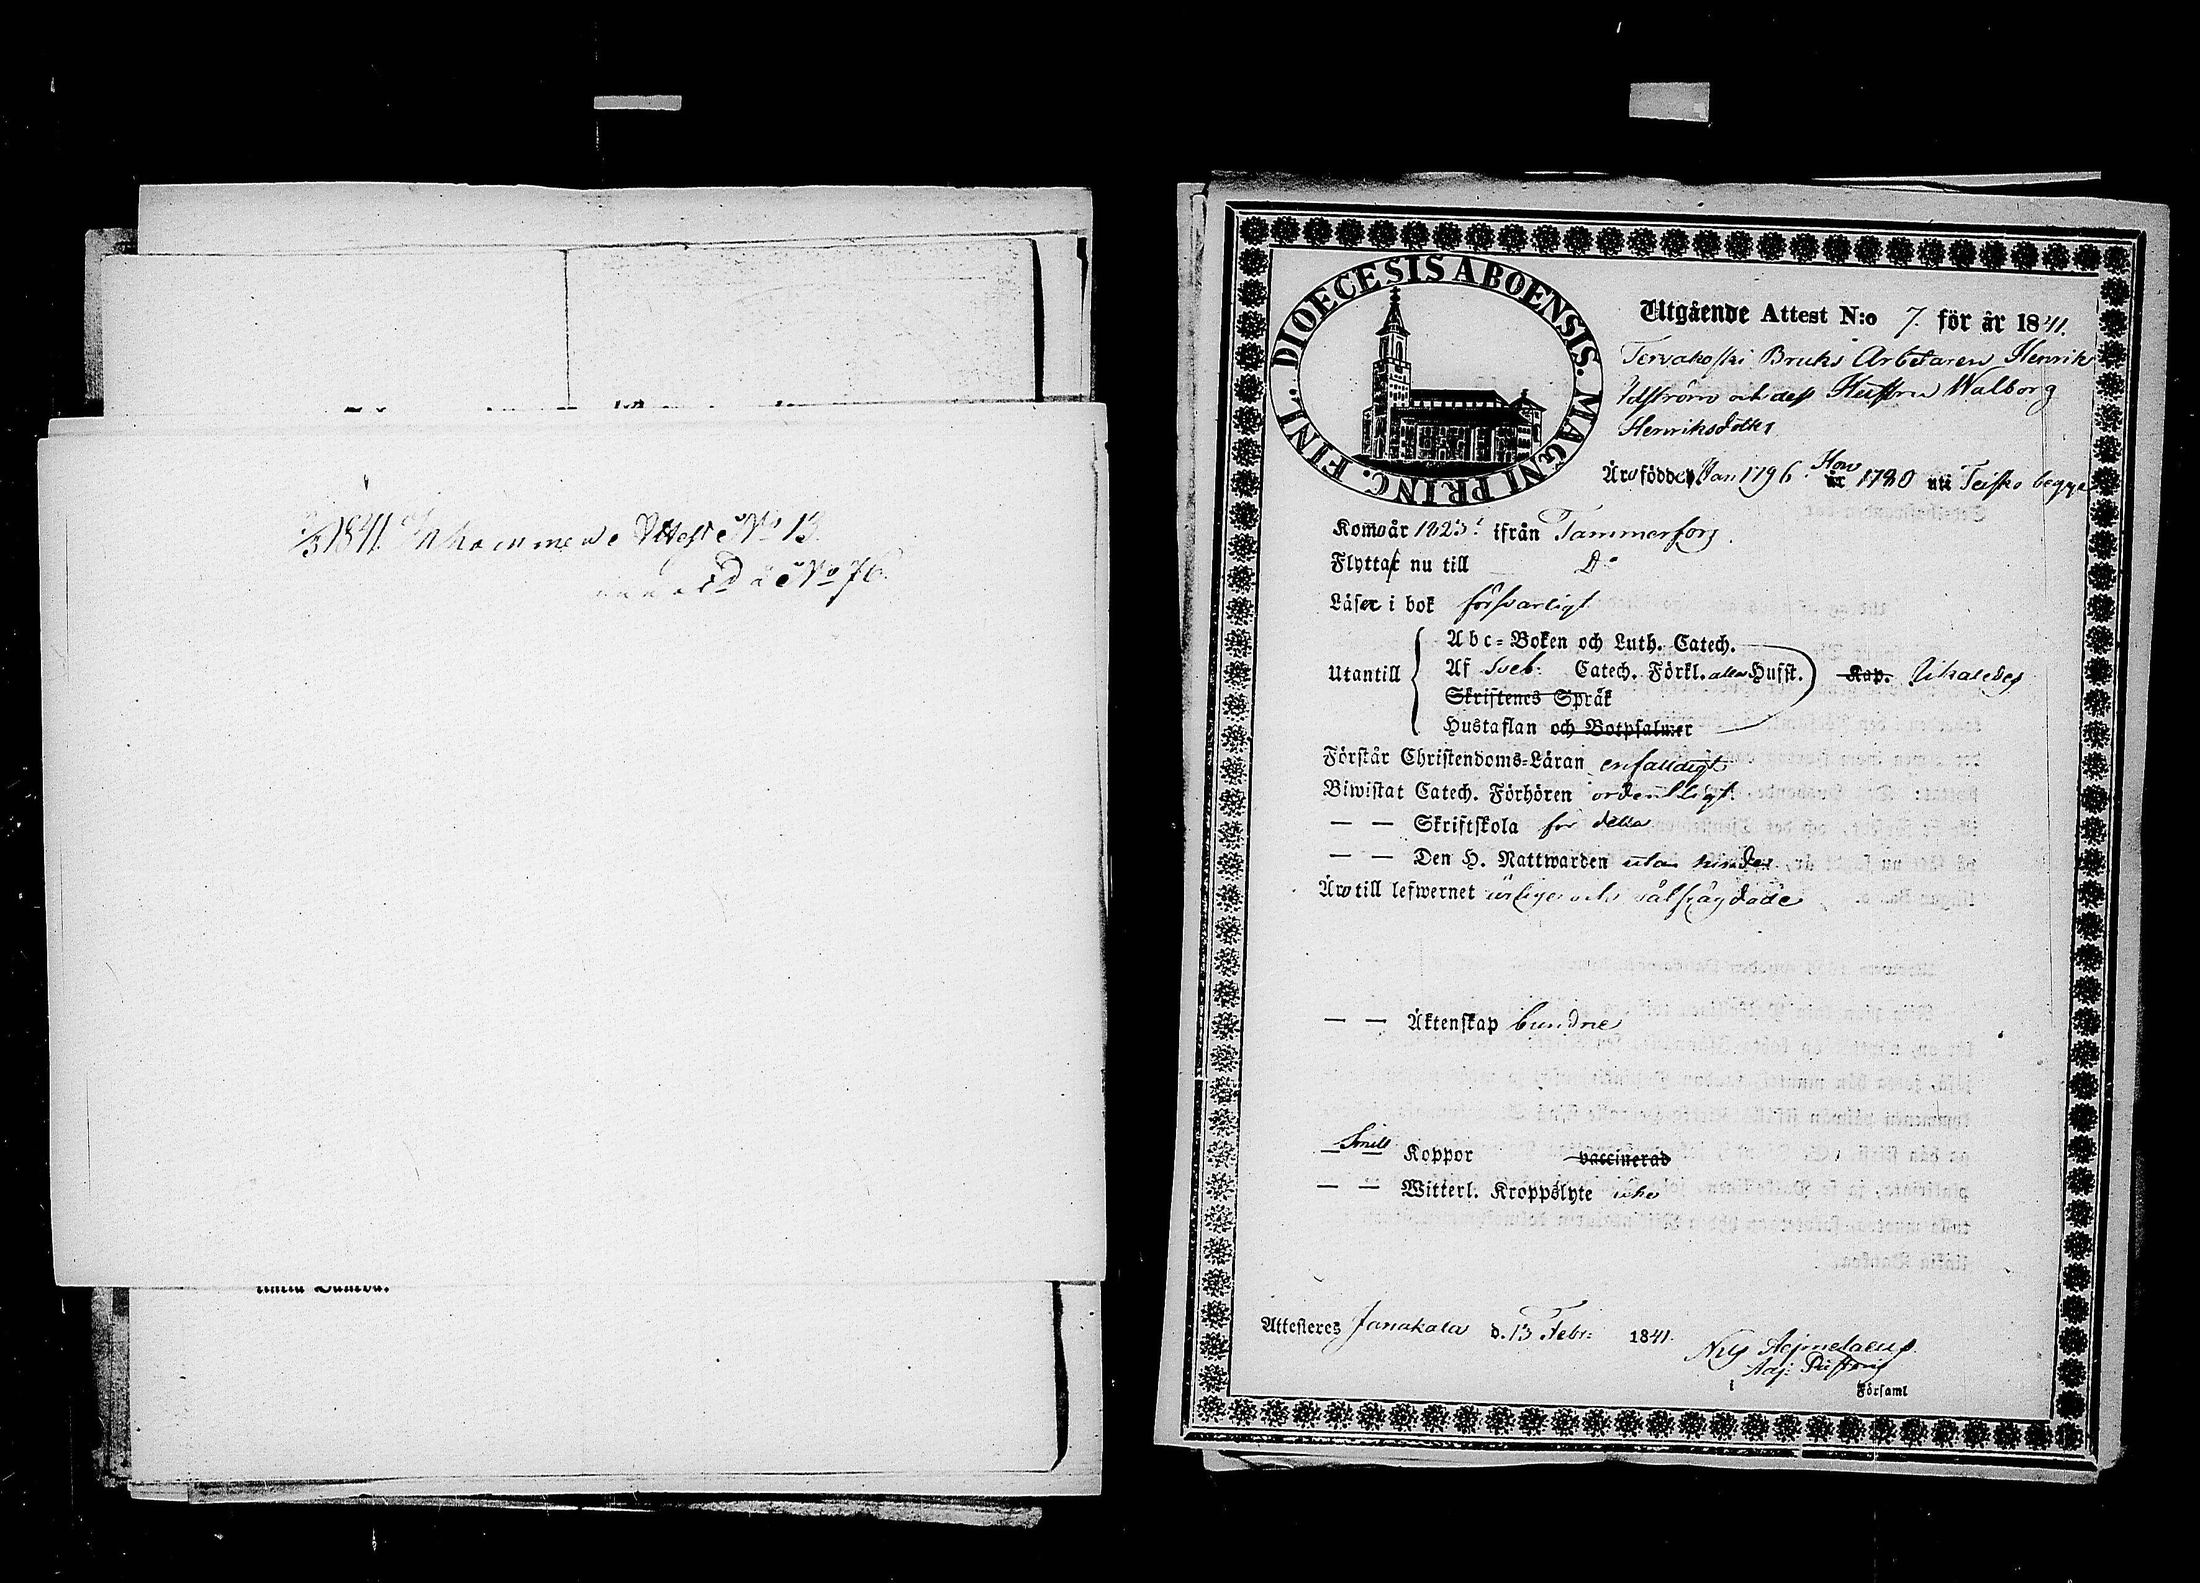 2/3 1841. Inkommende Attest No 13.
D:o No 76.
DIOECESIS ABOENSIS. MAGNI PRINC. FINL.
Utgående Attest N:o 7. för år 1841.
Tervakoski Bruks Arbetaren Henrik
Idström och dess Hustru Walborg
Henriksdotter
Äro födde Han 1796. Hon 1780 uti Teisko begge
Komo år 1823 ifrån Tammerfors.
Flytta nu till D:o
Läser i bok försvarligt
Utantill
Abc-Boken och Luth. Catech.
Af Sveb. Catech. Förkl. alla Hufst. Kap.
Skriftenes Språk
Hustaflan och Botpsalmer
Förstår Christendoms-Läran enfaldigt
Biwistat Catech. Förhören ordentligt
— — Skriftskola för detta
— — Den H. Nattwarden utan hinder
Äro till lefwernet ärlige och välfrägdade
— — Äktenskap bundne
— — Koppor vaccinerad
— — Witterl. Kroppslyte icke
Attesteres Janakala d. 13 Febr: 1841.
Nils Aejmelaeus
Adj: Pastoris
i Församl